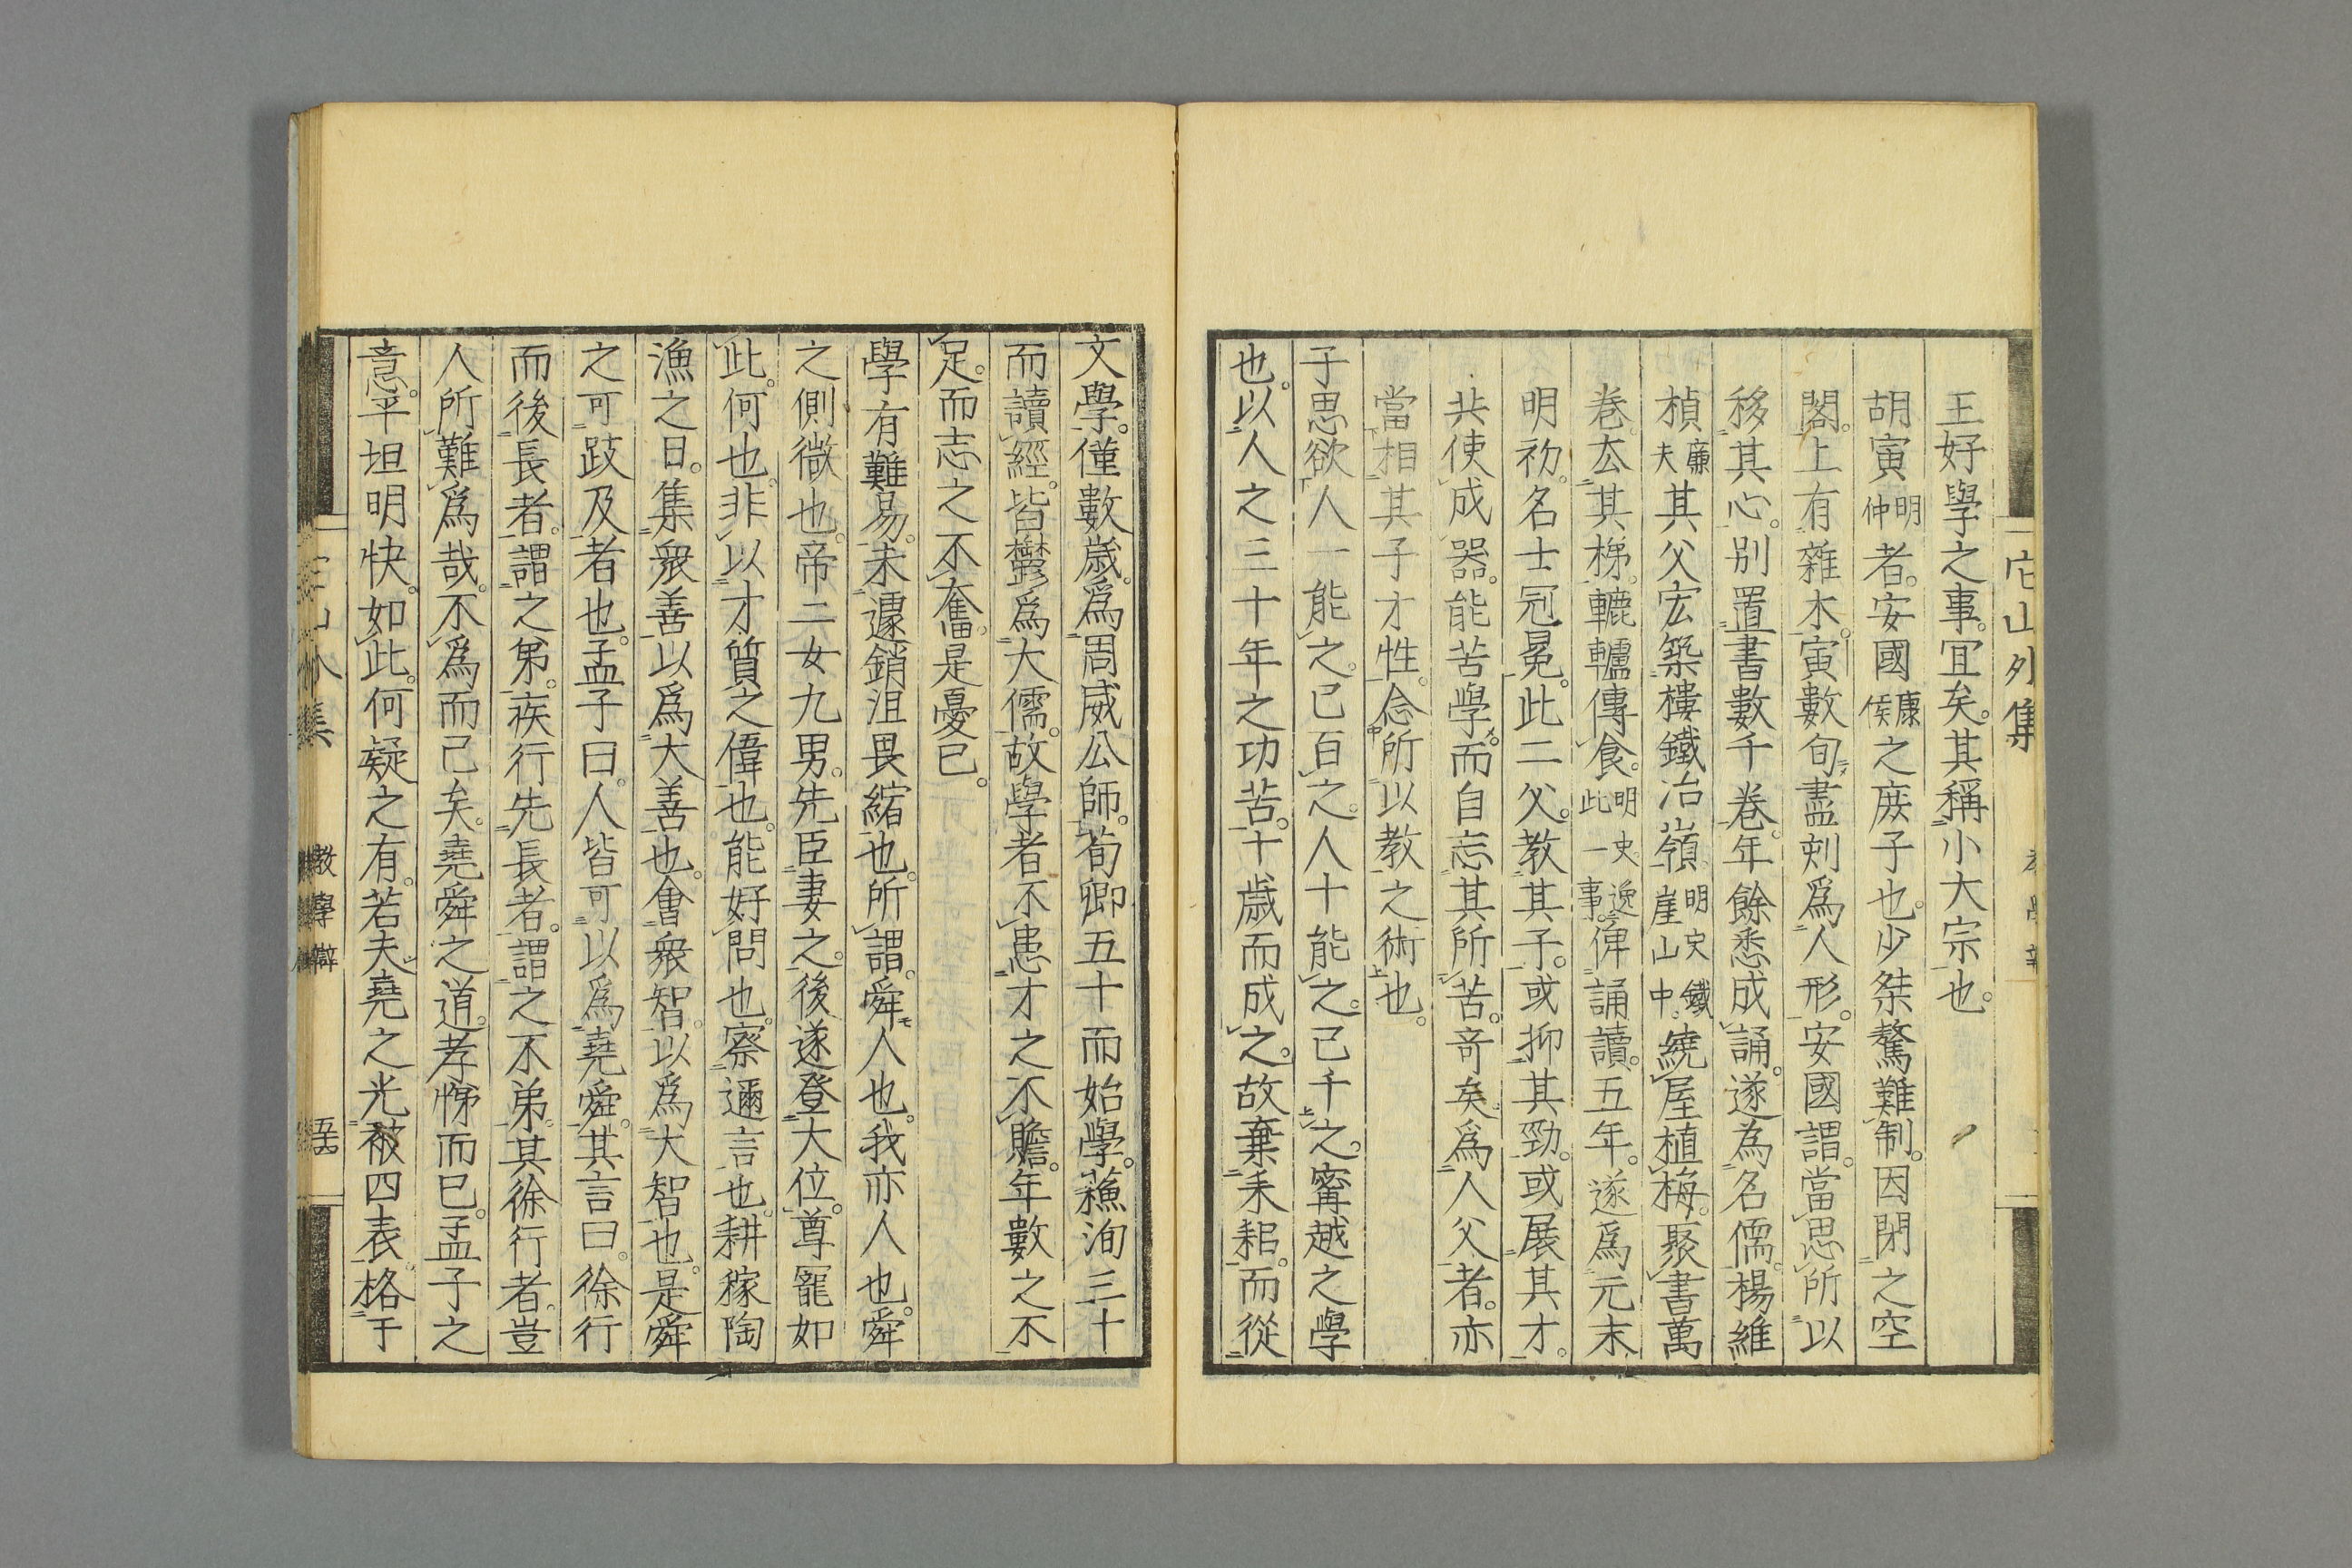 它山外集
王好學之事。宜矣。其稱小大宗也。
胡寅明仲者。安國康侯之庻子也。少桀驁難制。因閉之空
閣。上有雜木。寅數旬盡刾爲人形。安國謂。當思所以
移其心。別置書數千卷。年餘悉成誦。遂為名儒。楊維
楨廉夫其父宏築樓鐵冶嶺明史鐵崖山中。繞屋植梅。聚書萬
卷。厺其梯。轆轤傳食。明史逸此一事。俾誦讀。五年。遂爲元末
明初。名士冠冕。此二父。教其子。或抑其勁。或展其才。
共使成器。能苦學。而自忘其所苦。奇矣。爲人父者。亦
當相其子才性。念所以教之術也。
子思欲人一能之。己百之。人十能之。己千之。甯越之學
也。以人之三十年之功苦。十歳而成之。故棄耒耜。而從
文學。僅數歳。爲周威公師。荀卿五十而始學。蘓洵三十
而讀經。皆欝爲大儒。故學者不患才之不贍。年數之不
足。而志之不奮。是憂已。
學有難易。未遽銷沮畏縮也。所謂。舜人也。我亦人也。舜
之側微也。帝二女九男。先臣妻之。後遂登大位。尊寵如
此。何也。非以才質之偉也。能好問也。察邇言也。耕稼陶
漁之日。集衆善以爲大善也。會衆智以爲大智也。是舜
之可跂及者也。孟子曰。人皆可以爲堯舜。其言曰。徐行
而後長者。謂之弟。疾行先長者。謂之不弟。其徐行者。豈
人所難爲哉。不爲而已矣。堯舜之道。孝悌而已。孟子之
意。平坦明快。如此。何疑之有。若夫堯之光被四表。格于
教學辯